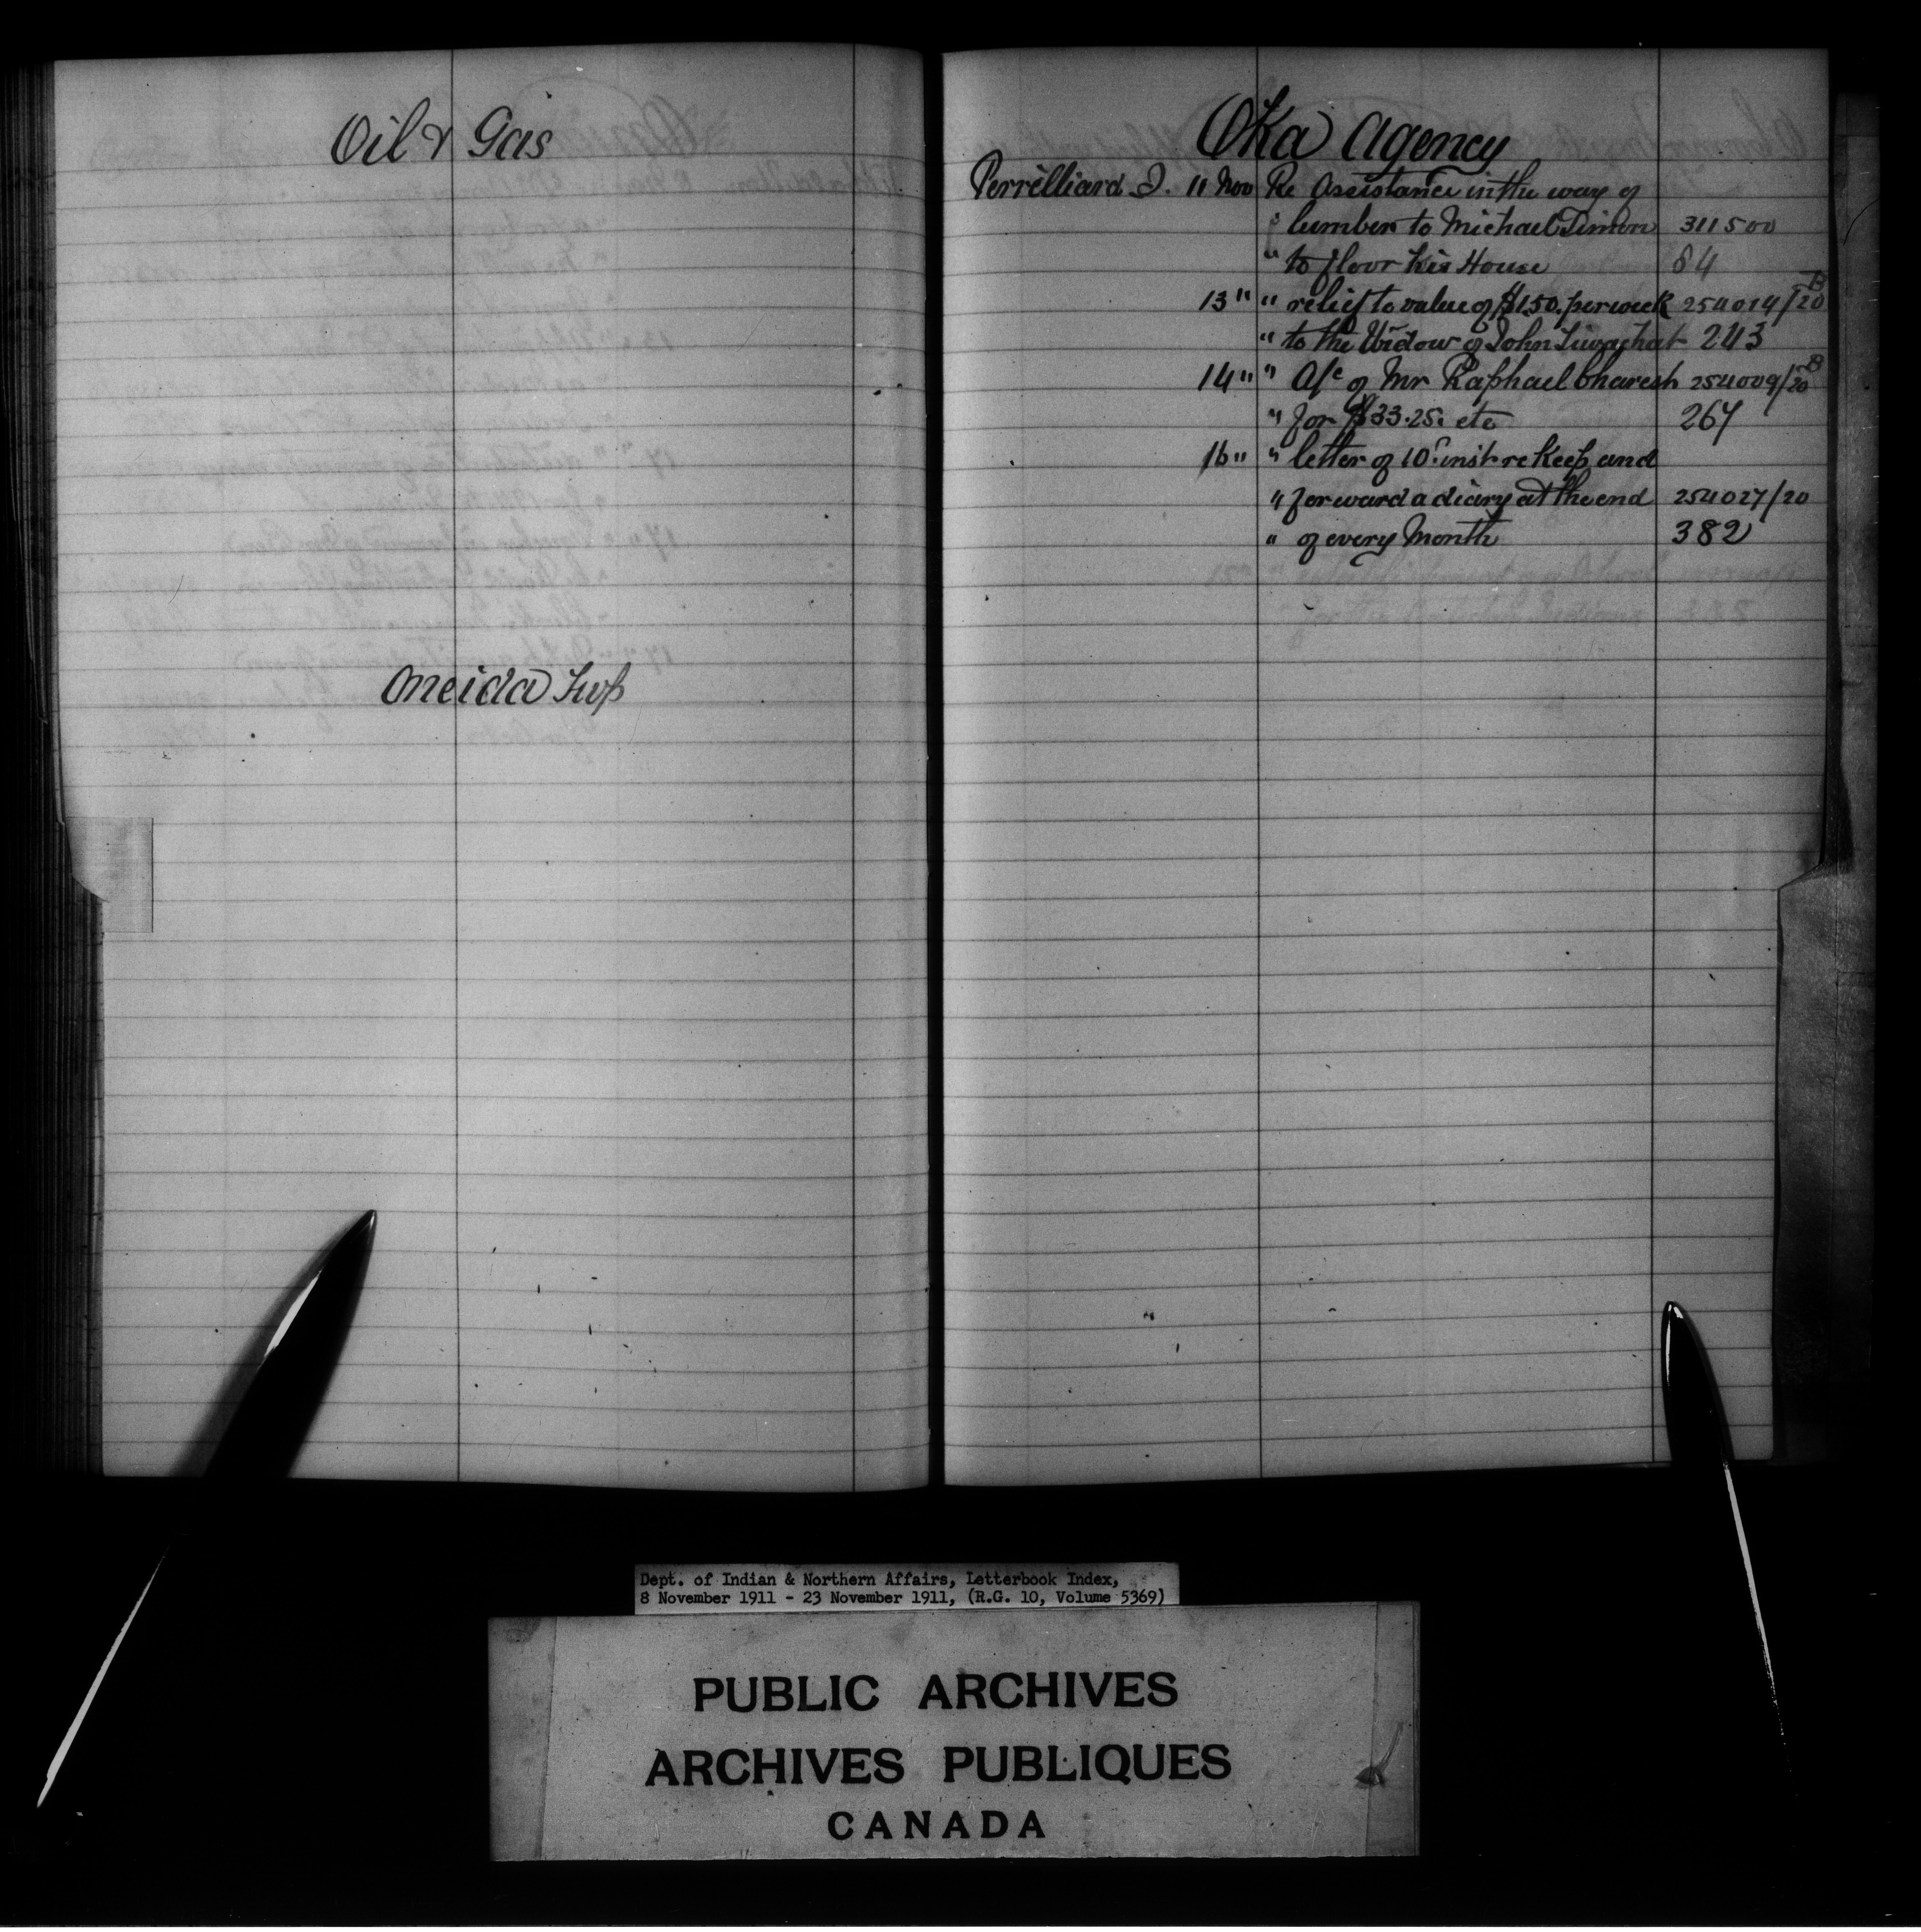 Oil & Gas
Oneida Twp
Oka Agency
Perrilliard J. 11 Nov Re Assistance in the way of
" lumber to Michael Simon 311500
" to floor his House 84
13 " " relief to value of $1.50. per week 254014/20 B
" to the Widow of John 243
14 " " A/c of Mr Raphael 254009/20 B
" for $33.25. etc 267
16 " " letter of 10" inst re Keep and
" forward a diary at the end 254027/20
" of every Month 382
Dept. of Indian & Northern Affairs, Letterbook Index,
8 November 1911 - 23 November 1911, (R.G. 10, Volume 5369)
PUBLIC ARCHIVES
ARCHIVES PUBLIQUES
CANADA